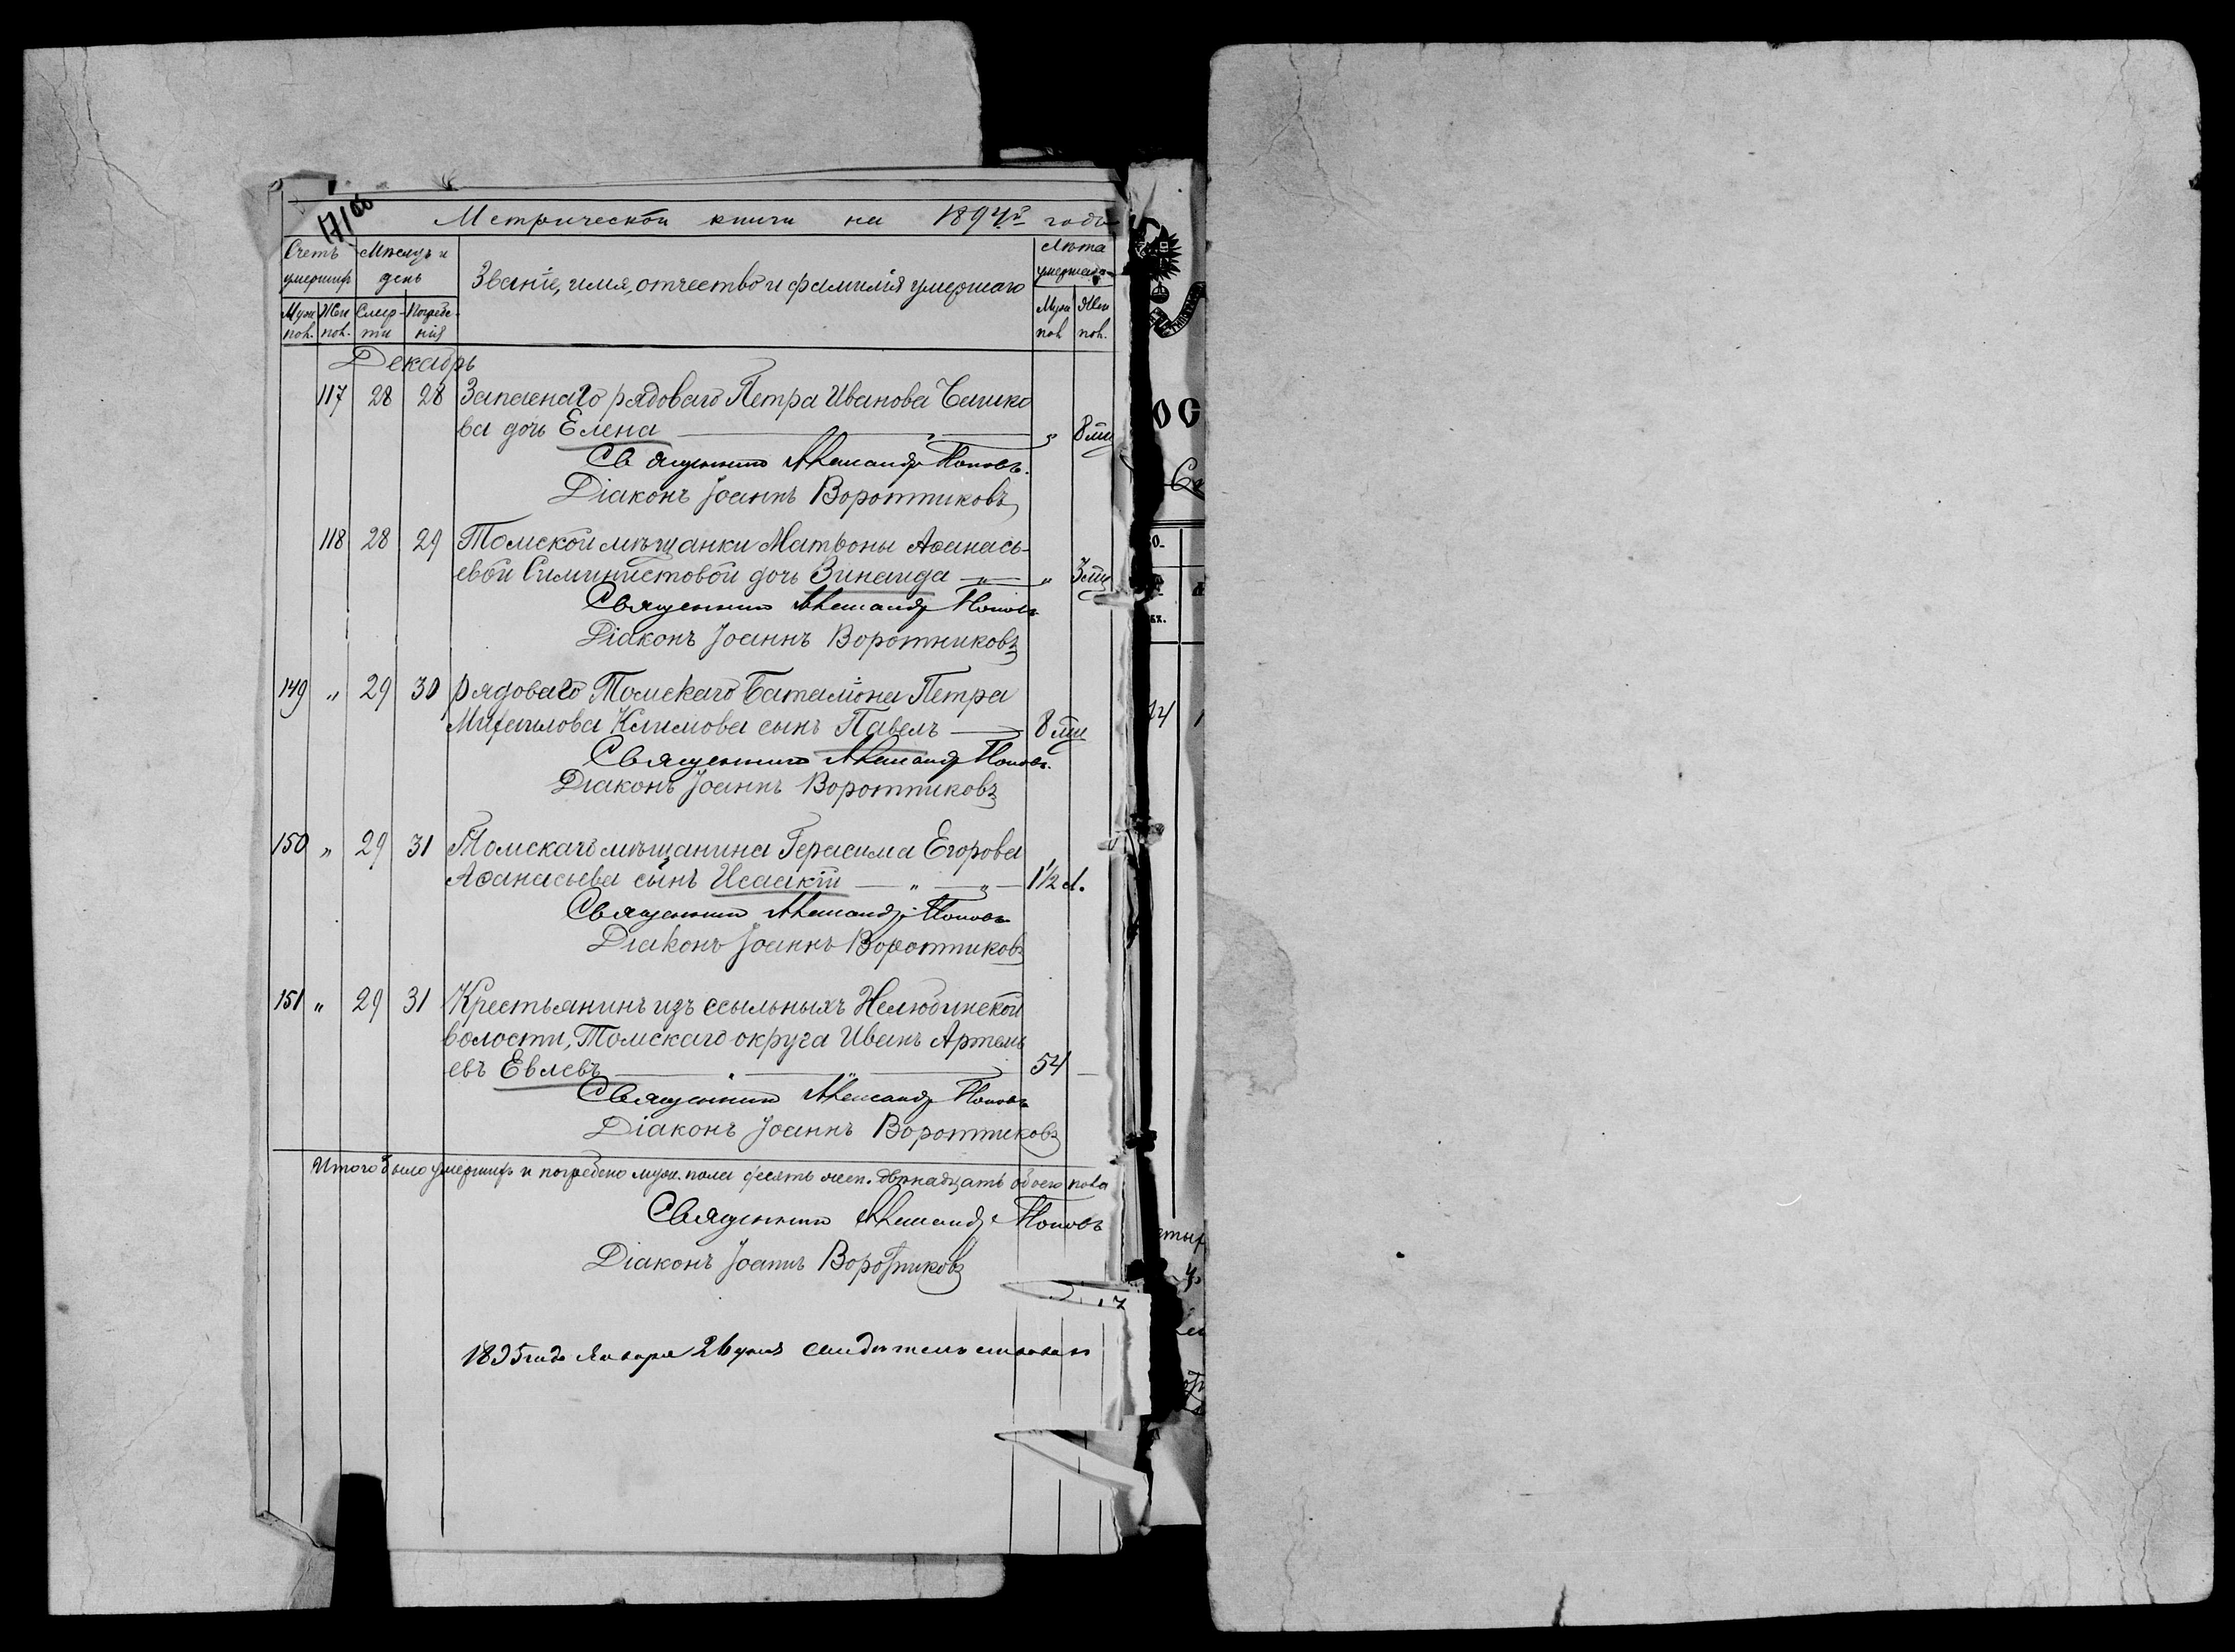 Метрической книги на 1894й годъ
Счетъ умершихъ
Мѣсяцъ и день
Званіе, имя, отчество и фамилія умершаго
Лѣта умершаго
Муж. пол. Жен. пол. Смерти Погребенія Муж. пол. Жен. пол.
Декабрь
117 28 28 Запаснаго рядоваго Петра Иванова
ва дочь Елена „ 8 м
Священникъ Александръ Поповъ.
Діаконъ Іоаннъ Воротниковъ
118 28 29 Томской мѣщанки Матроны Аѳанась-
евой дочь Зинаида „ „ 3
Священникъ Александръ Поповъ
Діаконъ Іоаннъ Воротниковъ
149 „ 29 30 рядоваго Томскаго Баталіона Петра
Михаилова Климова сынъ Павелъ 8
Священникъ Александръ Поповъ.
Діаконъ Іоаннъ Воротниковъ
150 „ 29 31 Томскаго мѣщанина Герасима Егорова
Аѳанасьева сынъ Исаакій „ „ 1½
Священникъ Александръ Поповъ
Діаконъ Іоаннъ Воротниковъ
151 „ 29 31 Крестьянинъ изъ ссыльныхъ Нелюбинской
волости, Томскаго округа Иванъ Артемь
евъ Евлевъ „ 54
Священникъ Александръ Поповъ
Діаконъ Іоаннъ Воротниковъ
Итого было умершихъ и погребено муж. пола десять жен. двѣнадцать обоего пола
Священникъ Александръ Поповъ
Діаконъ Іоаннъ Воротниковъ
1895 года Января 26 дня свидѣтельствовалъ